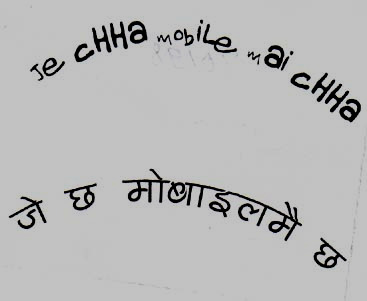 Je cHHa mobile mai cHHa
जे छ मोबाइलमै छ